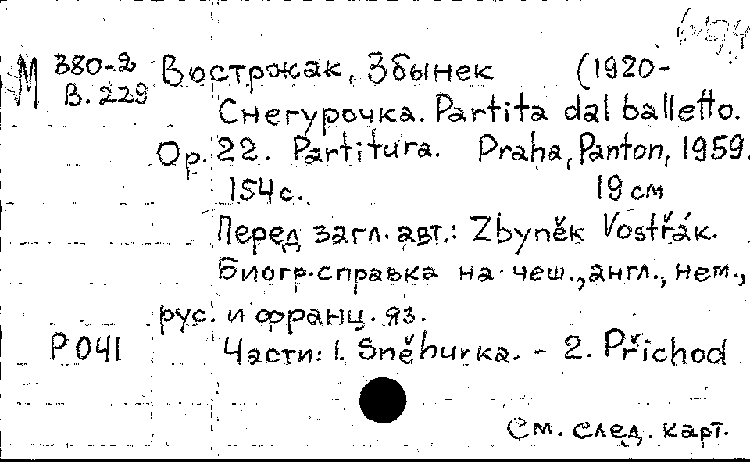 М 380-2 Востржак, Збынек (1920-
В.229 Снегурочка. Partita dal balletto.
Op. 22. Partitura. Praha, Panton, 1959.
154 с. 19 см
Перед загл. авт.: Zbyněk Vostřák.
Биогр. справка на чеш., англ., нем.,
рус. и франц. яз.
Р041 Части: 1. Sněhurka. - 2. Příchod
См. след. карт.